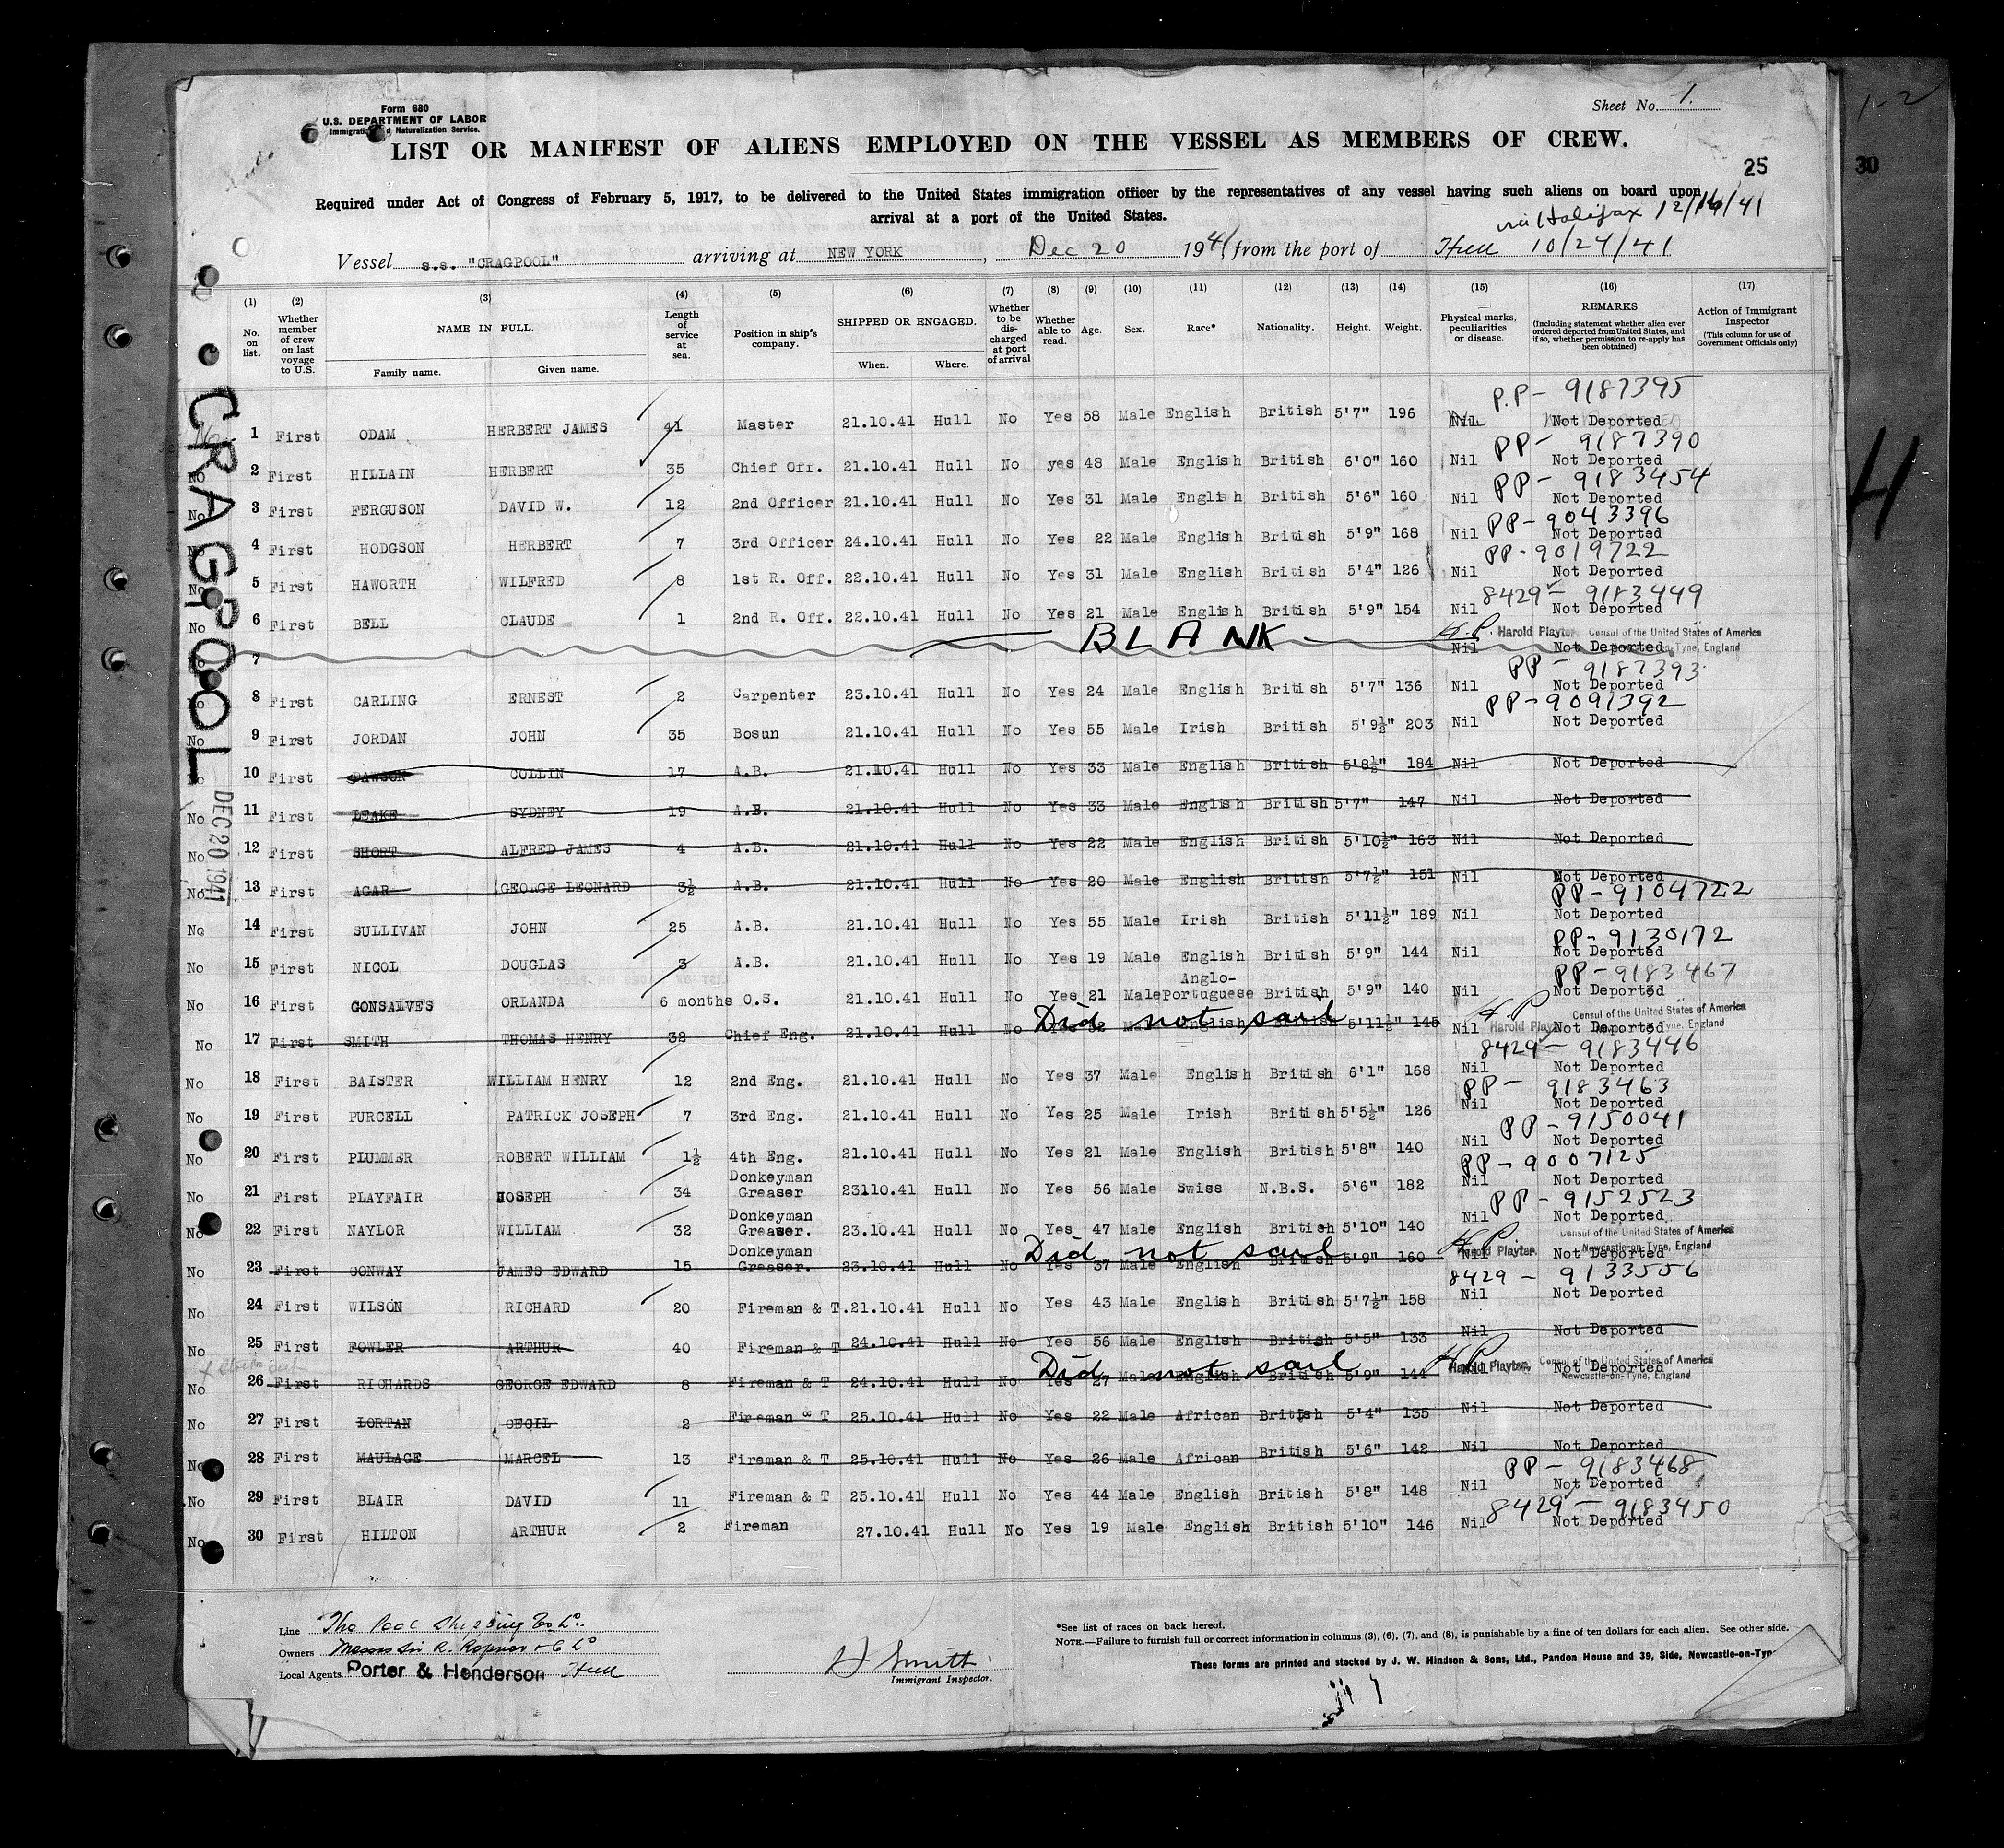 1-2
Form 680
U.S. DEPARTMENT OF LABOR
Immigration and Naturalization Service.
Sheet No. 1.
LIST OR MANIFEST OF ALIENS EMPLOYED ON THE VESSEL AS MEMBERS OF CREW.
25 30
Required under Act of Congress of February 5, 1917, to be delivered to the United States immigration officer by the representatives of any vessel having such aliens on board upon
arrival at a port of the United States.
via Halifax 12/16/41
Vessel s.s. "CRAGPOOL" arriving at NEW YORK, Dec 20 1941 from the port of Hull 10/27/41
(1) (2) (3) (4) (5) (6) (7) (8) (9) (10) (11) (12) (13) (14) (15) (16) (17)
No. on list. Whether member of crew on last voyage to U.S. NAME IN FULL. Family name. Given name. Length of service at sea. Position in ship's company. SHIPPED OR ENGAGED. When. Where. Whether to be discharged at port of arrival Whether able to read. Age. Sex. Race* Nationality. Height. Weight. Physical marks, peculiarities or disease. REMARKS (Including statement whether alien ever ordered deported from United States, and if so, whether permission to re-apply has been obtained) Action of Immigrant Inspector (This column for use of Government Officials only)
CRAGPOOL
DEC 20 1941
P.P- 9187395
1 First ODAM HERBERT JAMES 41 Master 21.10.41 Hull No Yes 58 Male English British 5'7" 196 Nil Not Deported
PP- 9187390
No 2 First HILLAIN HERBERT 35 Chief Off. 21.10.41 Hull No yes 48 Male English British 6'0" 160 Nil Not Deported
PP- 9183454
No 3 First FERGUSON DAVID W. 12 2nd Officer 21.10.41 Hull No Yes 31 Male English British 5'6" 160 Nil Not Deported
PP-9043396
4 First HODGSON HERBERT 7 3rd Officer 24.10.41 Hull No Yes 22 Male English British 5'9" 168 Nil Not Deported
PP-9019722
No 5 First HAWORTH WILFRED 8 1st R. Off. 22.10.41 Hull No Yes 31 Male English British 5'4" 126 Nil Not Deported
8429- 9183449
No 6 First BELL CLAUDE 1 2nd R. Off. 22.10.41 Hull No Yes 21 Male English British 5'9" 154 Nil Not Deported
BLANK H.P. Harold Playter Consul of the United States of America
7 Nil Not Deported
PP- 9187393
8 First CARLING ERNEST 2 Carpenter 23.10.41 Hull No Yes 24 Male English British 5'7" 136 Nil Not Deported
PP-9091392
No 9 First JORDAN JOHN 35 Bosun 21.10.41 Hull No Yes 55 Male Irish British 5'9½" 203 Nil Not Deported
No 10 First DAWSON COLLIN 17 A.B. 21.10.41 Hull No Yes 33 Male English British 5'8½" 184 Nil Not Deported
No 11 First LEAKE SYDNEY 19 A.B. 21.10.41 Hull No Yes 33 Male English British 5'7" 147 Nil Not Deported
No 12 First SHORT ALFRED JAMES 4 A.B. 21.10.41 Hull No Yes 22 Male English British 5'10½" 163 Nil Not Deported
No 13 First AGAR GEORGE LEONARD 3½ A.B. 21.10.41 Hull No Yes 20 Male English British 5'7½" 151 Nil Not Deported
PP-9104722
No 14 First SULLIVAN JOHN 25 A.B. 21.10.41 Hull No Yes 55 Male Irish British 5'11½" 189 Nil Not Deported
PP-9130172
No 15 First NICOL DOUGLAS 3 A.B. 21.10.41 Hull No Yes 19 Male English British 5'9" 144 Nil Not Deported
PP-9183467
No 16 First GONSALVES ORLANDA 6 months O.S. 21.10.41 Hull No Yes 21 Male Anglo-Portuguese British 5'9" 140 Nil Not Deported
Did not sail H.P. Harold Playter Consul of the United States of America
No 17 First SMITH THOMAS HENRY 32 Chief Eng. 21.10.41 Hull No 52 English British 5'11½" 145 Nil Not Deported
8429- 9183446
No 18 First BAISTER WILLIAM HENRY 12 2nd Eng. 21.10.41 Hull No Yes 37 Male English British 6'1" 168 Nil Not Deported
PP- 9183463
No 19 First PURCELL PATRICK JOSEPH 7 3rd Eng. 21.10.41 Hull No Yes 25 Male Irish British 5'5½" 126 Nil Not Deported
PP-9150041
No 20 First PLUMMER ROBERT WILLIAM 1½ 4th Eng. 21.10.41 Hull No Yes 21 Male English British 5'8" 140 Nil Not Deported
PP-9007125
No 21 First PLAYFAIR JOSEPH 34 Donkeyman Greaser 23110.41 Hull No Yes 56 Male Swiss N.B.S. 5'6" 182 Nil Not Deported
PP-9152523
No 22 First NAYLOR WILLIAM 32 Donkeyman Greaser. 23.10.41 Hull No Yes 47 Male English British 5'10" 140 Nil Not Deported
Did not sail H.P. Harold Playter. Consul of the United States of America Newcastle-on-Tyne, England
No 23 First CONWAY JAMES EDWARD 15 Donkeyman Greaser. 23.10.41 Hull No Yes 37 Male English British 5'9" 160 Nil Not Deported
8429 - 9133556
No 24 First WILSON RICHARD 20 Fireman & T. 21.10.41 Hull No Yes 43 Male English British 5'7½" 158 Nil Not Deported
No 25 First FOWLER ARTHUR 40 Fireman & T 24.10.41 Hull No Yes 56 Male English British 5'5" 133 Nil Not Deported
Did not sail H.P. Harold Playter. Consul of the United States of America Newcastle-on-Tyne, England
No 26 First RICHARDS GEORGE EDWARD 8 Fireman & T 24.10.41 Hull No Yes 27 Male English British 5'9" 144 Nil Not Deported
No 27 First LORTAN CECIL 2 Fireman & T 25.10.41 Hull No Yes 22 Male African British 5'4" 135 Nil Not Deported
No 28 First MAULAGE MARCEL 13 Fireman & T 25.10.41 Hull No Yes 26 Male African British 5'6" 142 Nil Not Deported
PP- 9183468
No 29 First BLAIR DAVID 11 Fireman & T 25.10.41 Hull No Yes 44 Male English British 5'8" 148 Nil Not Deported
8429- 9183450
No 30 First HILTON ARTHUR 2 Fireman 27.10.41 Hull No Yes 19 Male English British 5'10" 146 Nil Not Deported
Line The Pool Shipping Co Lo.
Owners Messrs Sir R. Ropner & Co Lo
Local Agents Porter & Henderson Hull
H Smith
Immigrant Inspector.
*See list of races on back hereof.
NOTE.—Failure to furnish full or correct information in columns (3), (6), (7), and (8), is punishable by a fine of ten dollars for each alien. See other side.
These forms are printed and stocked by J. W. Hindson & Sons, Ltd., Pandon House and 39, Side, Newcastle-on-Tyne